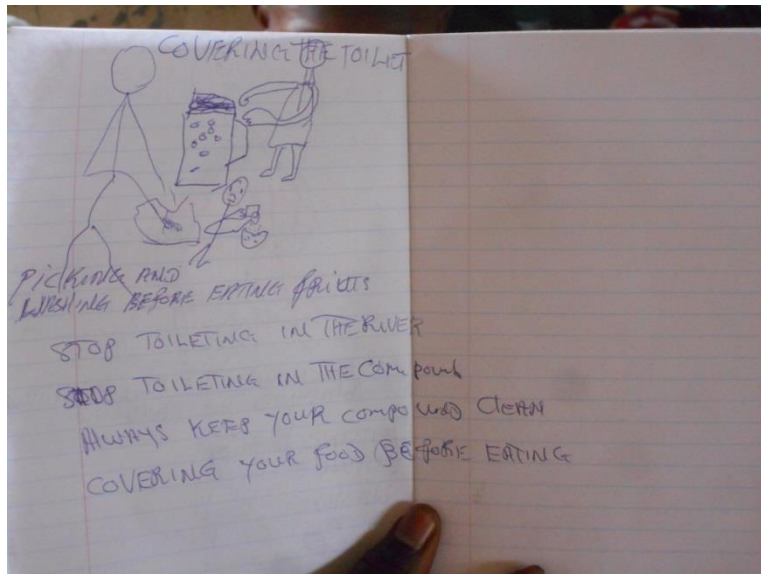 COVERING THE TOILET
PICKING AND
WASHING BEFORE EATING fRUITS
STOP TOILETING IN THE RIVER
STOP TOILETING IN THE COMPOUND
ALWAYS KEEP YOUR COMPOUND CLEAN
COVERING YOUR fOOD BEfORE EATING